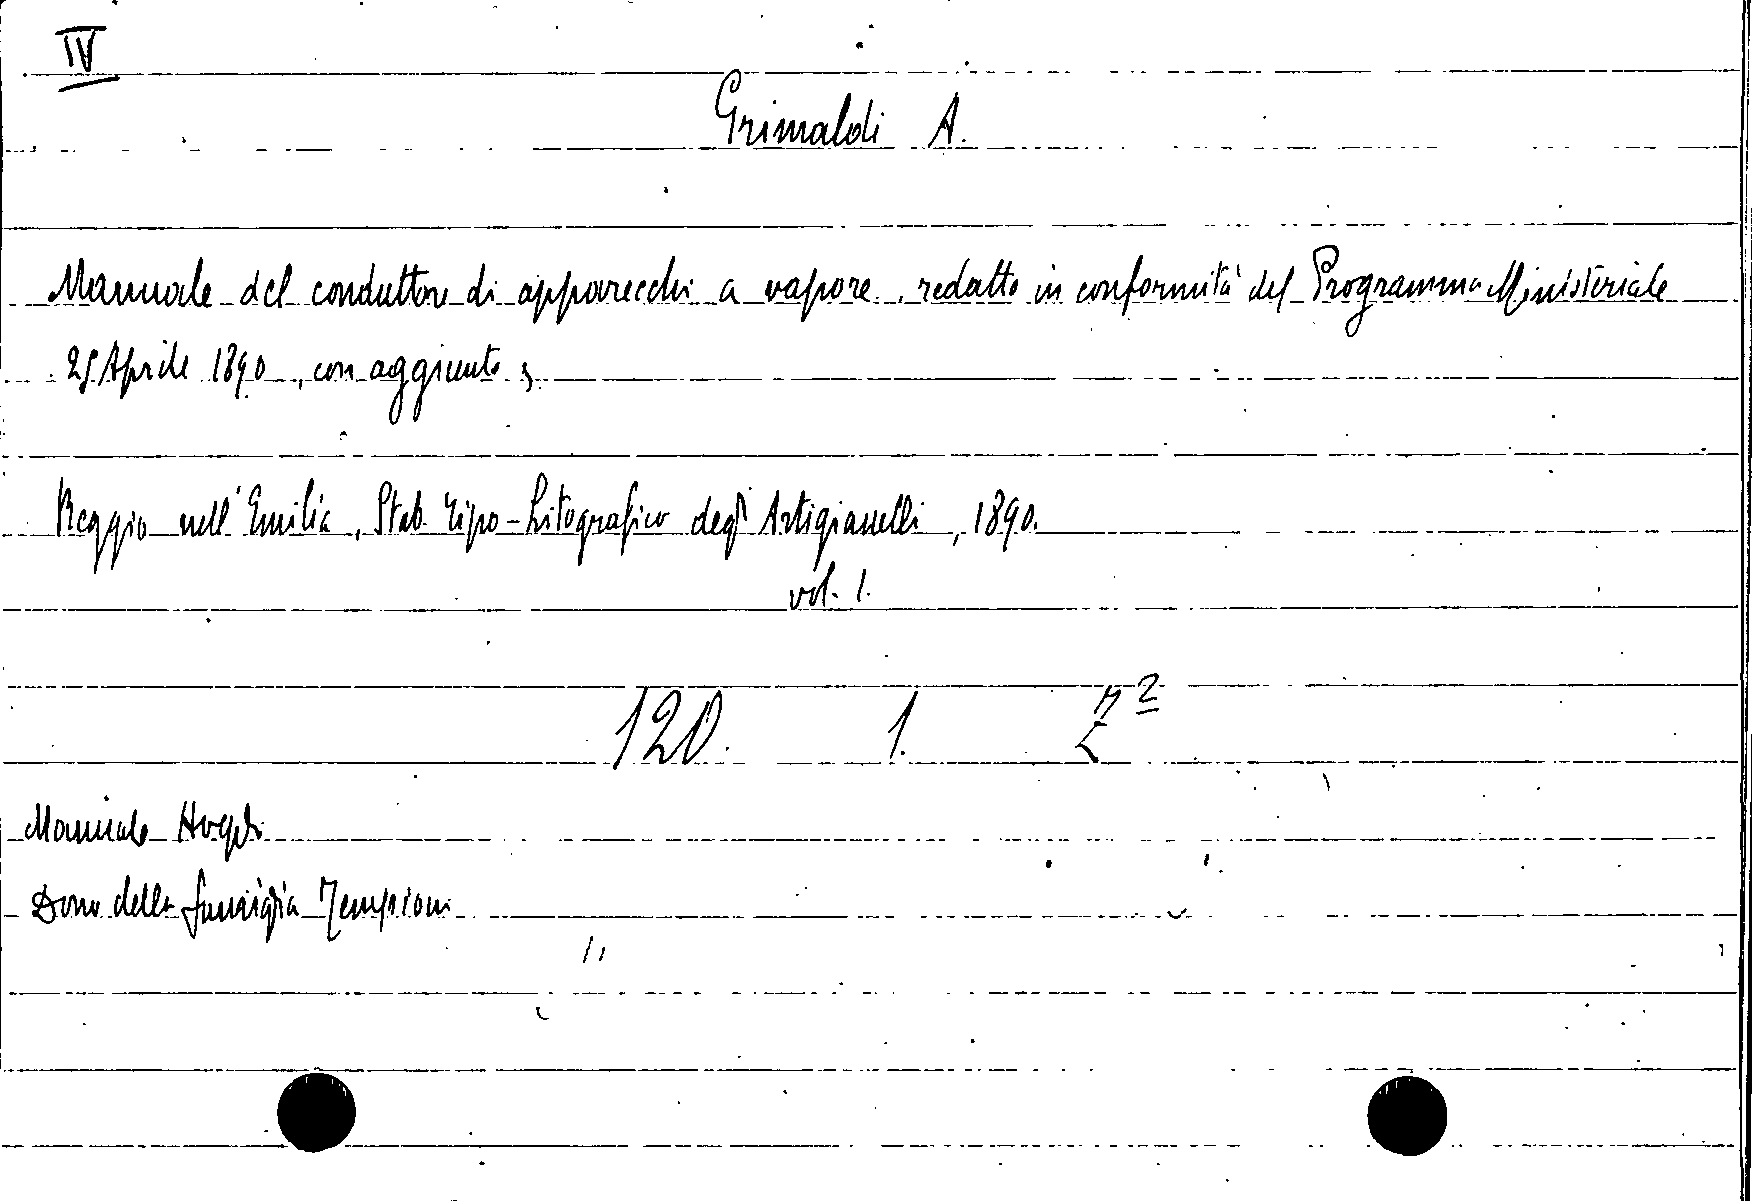 IV
Grimaldi A.
Manuale del conduttore di apparecchi a vapore, redatto in conformità del Programma Ministeriale
25 Aprile 1890, con aggiunte;
Reggio nell'Emilia, Stab. Tipo-Litografico degli Artigianelli, 1890.
vol. 1.
120. 1. Z 2
Manuale
Dono della famiglia